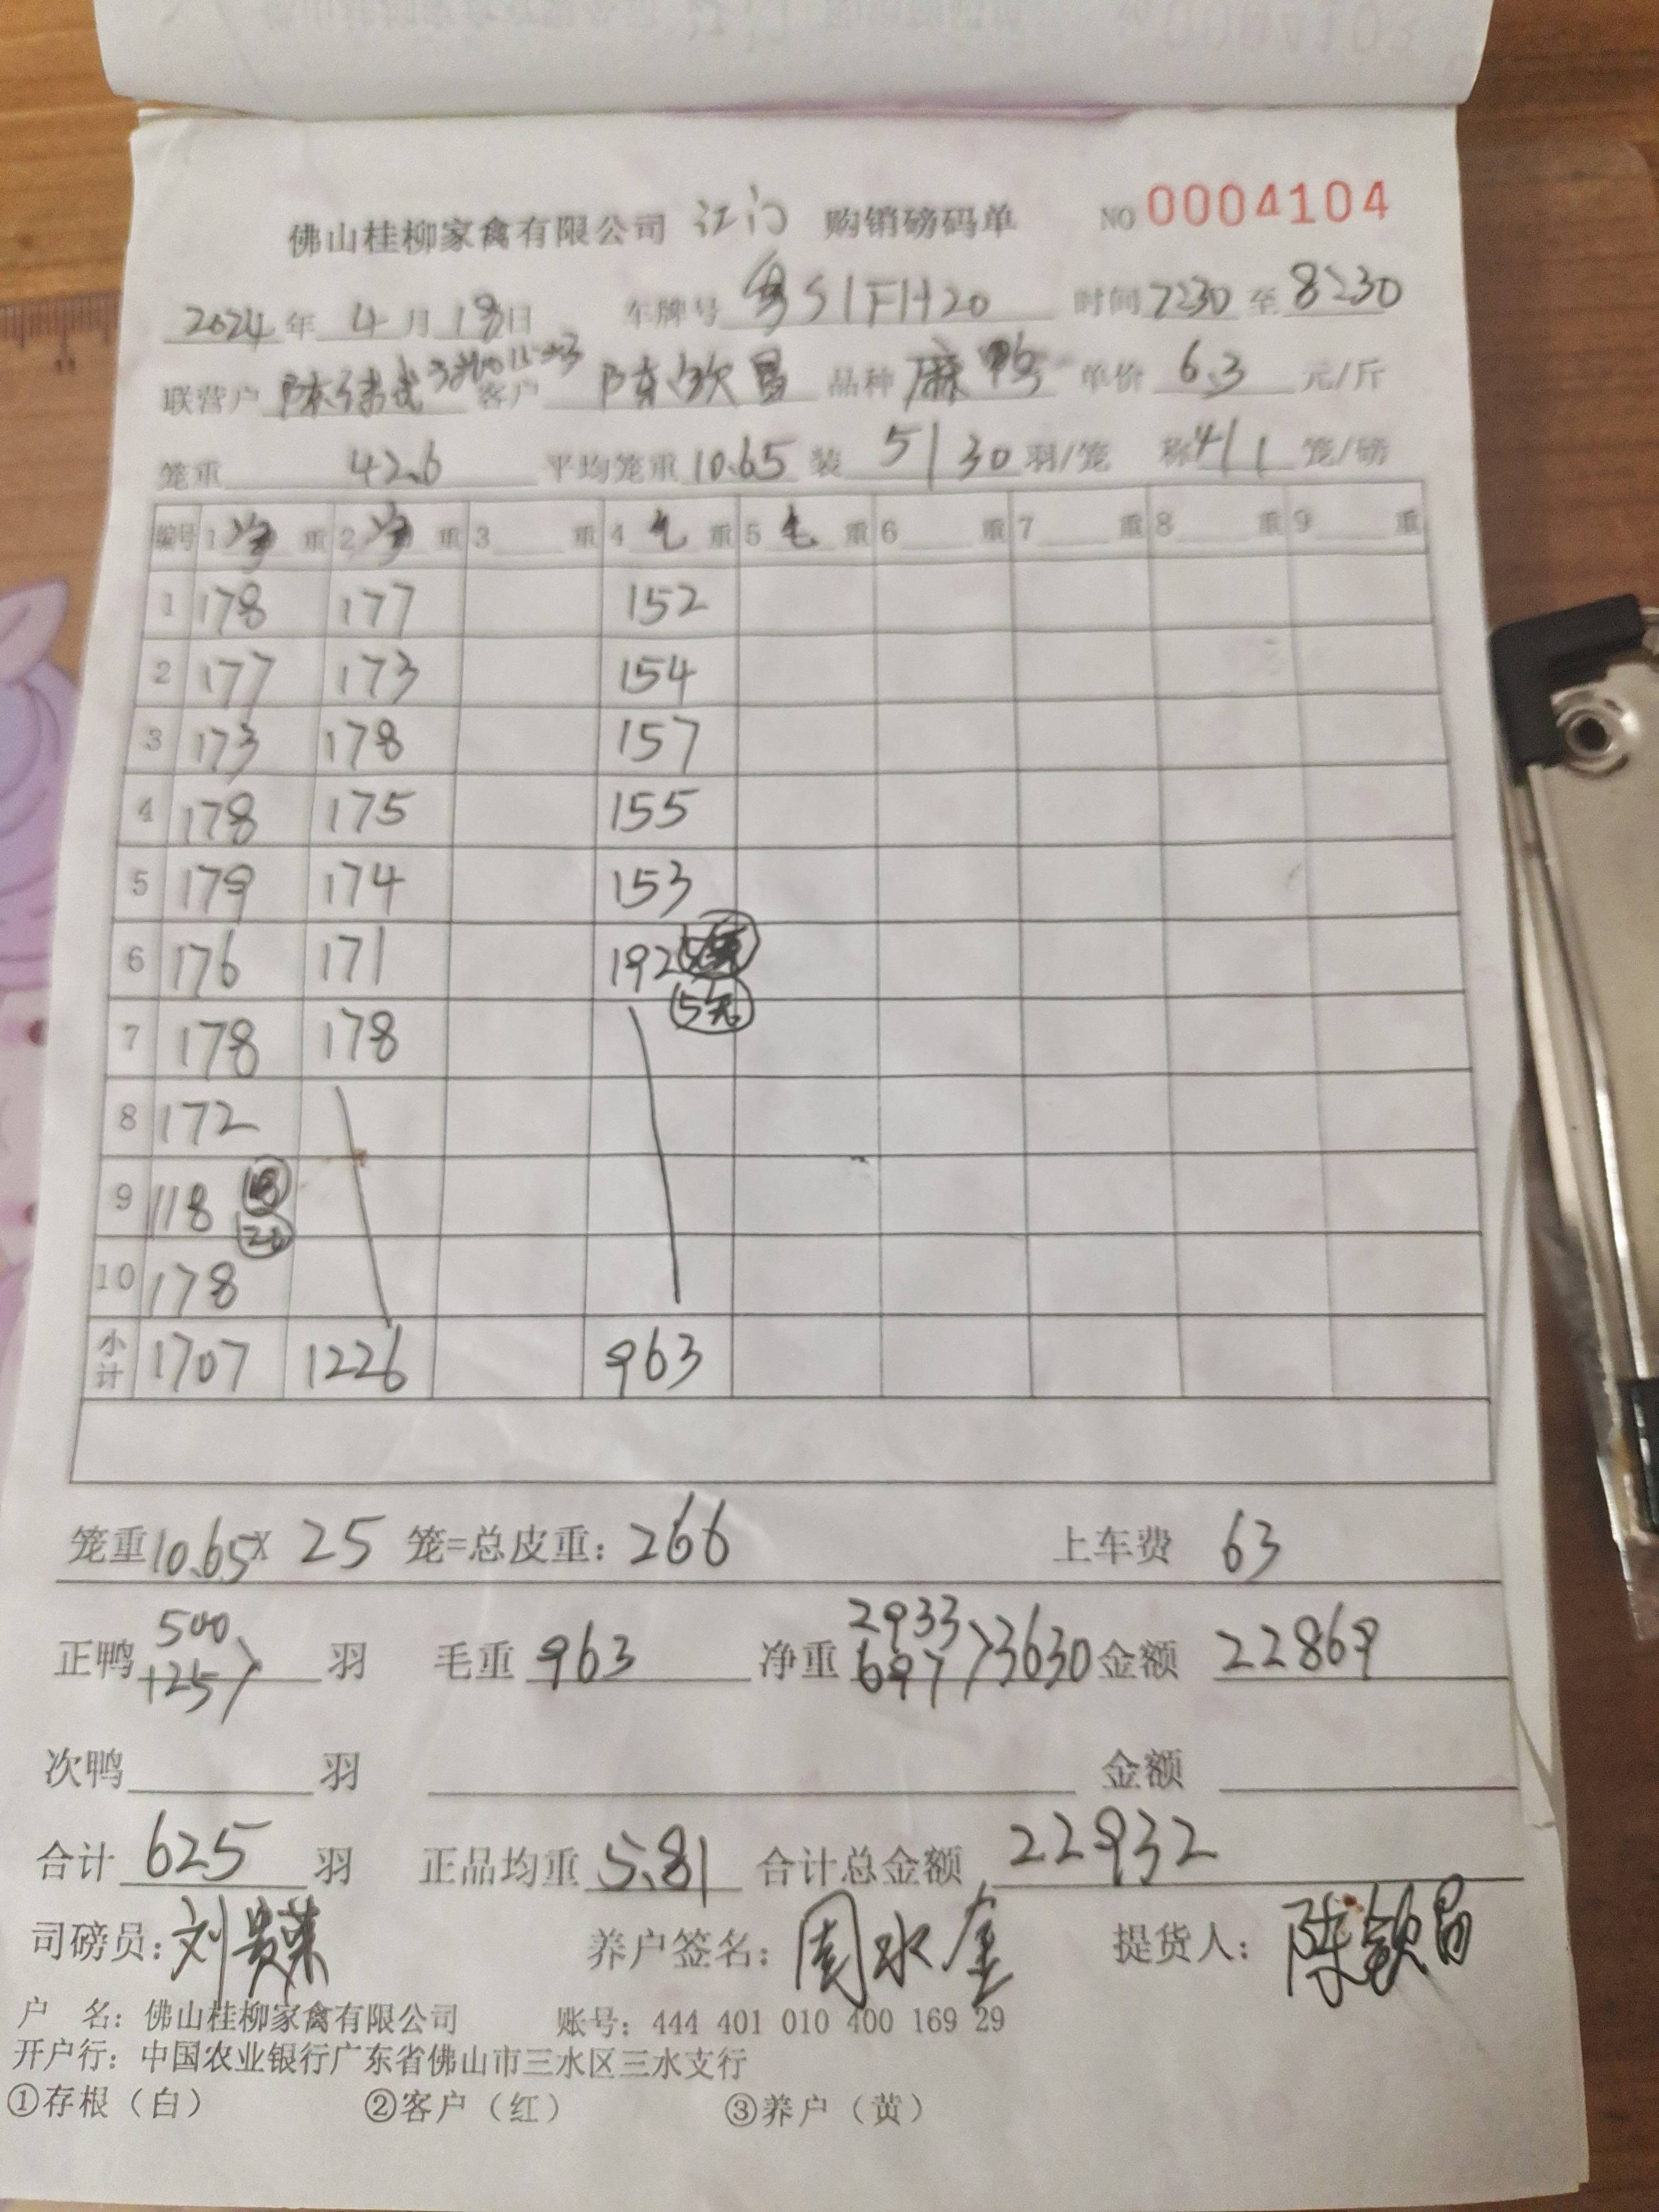 佛山桂柳家禽有限公司 江门 购销磅码单 NO 0004104
2024 年 4 月 18 日 车牌号 粤S1FH20 时间 7:30 至 8:30
联营户 陈 客户 陈钦昌 品种 麻鸭 单价 6.3 元/斤
笼重 42.6 平均笼重 10.65 装 5/30 羽/笼 称 4/1 笼/磅
编号 1 净 重 2 净 重 3 重 4 毛 重 5 毛 重 6 重 7 重 8 重 9 重
1 178 177 152
2 177 173 154
3 173 178 157
4 178 175 155
5 179 174 153
6 176 171 192
7 178 178 5笼
8 172
9 118 20
10 178
小计 1707 1226 963
笼重 10.65 X 25 笼=总皮重: 266 上车费 63
正鸭 500 +125 羽 毛重 963 净重 2933 697 3630 金额 22869
次鸭 羽 金额
合计 625 羽 正品均重 5.81 合计总金额 22932
司磅员: 刘贵荣 养户签名: 周水金 提货人: 陈钦昌
户 名: 佛山桂柳家禽有限公司 账号: 444 401 010 400 169 29
开户行: 中国农业银行广东省佛山市三水区三水支行
①存根（白） ②客户（红） ③养户（黄）